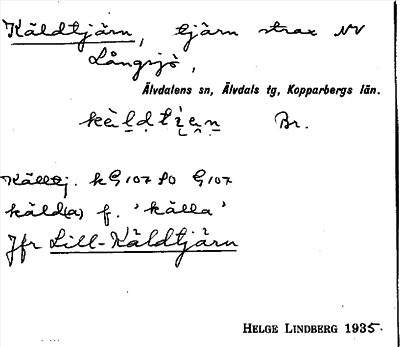 Käldtjärn, tjärn strax NV
Långsjö,
Älvdalens sn, Älvdals tg, Kopparbergs län.
Br.
Källtj. kG107 SO G107
käld(a) f. 'källa'
Jfr Lill-Käldtjärn
HELGE LINDBERG 1935.